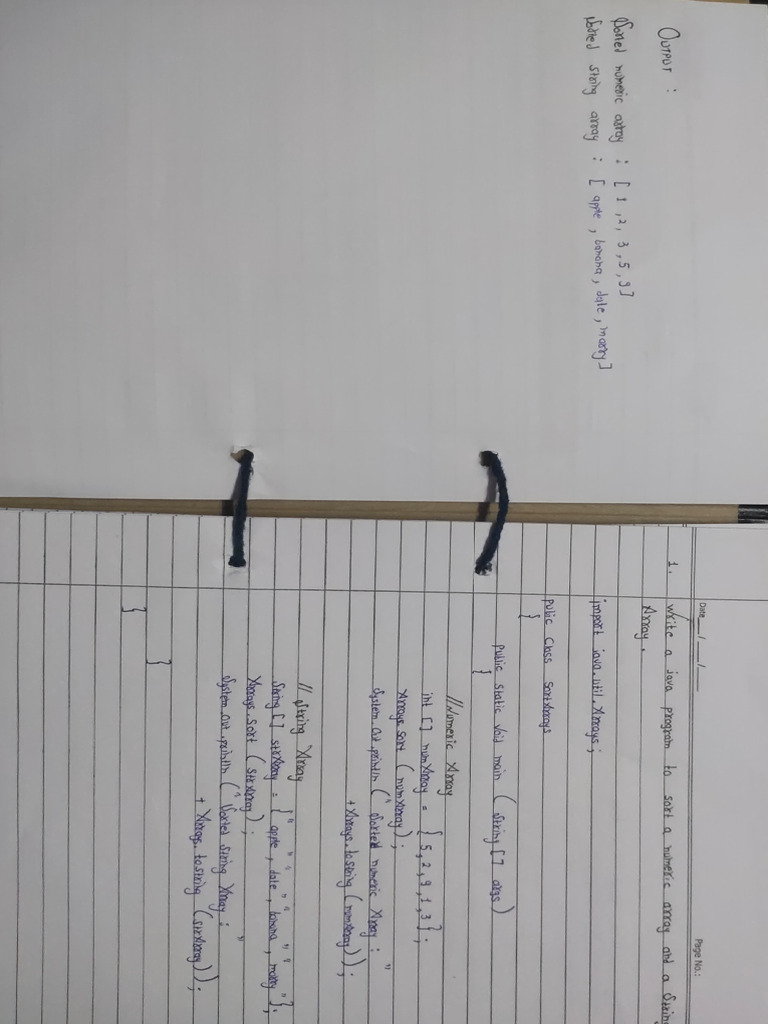 OUTPUT :
Sorted numeric array : [ 1 , 2 , 3 , 5 , 9 ]
Sorted string array : [ apple , banana , date , marry ]
Date __/__/__
Page No.:
1. write a java program to sort a numeric array and a String
Array.
import java.util.Arrays;
public class SortArrays
{
public static void main ( String [ ] args )
{
//Numeric Array
int [ ] numArray = { 5 , 2 , 9 , 1 , 3 } ;
Arrays.sort ( numArray ) ;
System.out.println ( " Sorted numeric Array : "
+ Arrays.toString ( numArray ) ) ;
// String Array
String [ ] strArray = { " apple " , " date " , " banana " , " marry " } ;
Arrays.sort ( strArray ) ;
System.out.println ( " Sorted String Array : "
+ Arrays.toString ( strArray ) ) ;
}
}